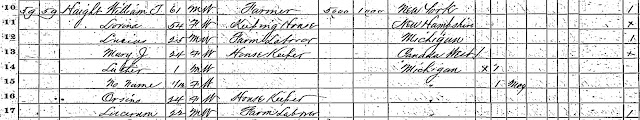 10 59 59 Haight William T. 61 M W Farmer 5000 1000 New York 1
11 " Lovina 54 F W Keeping House New Hampshire
12 " Lucius 25 M W Farm Laborer Michigan 1
13 " Mary J. 24 F W House Keeper Canada West
14 " Luther 1 M W Michigan
15 " No name 1/12 F W " 1 May
16 " " Orsina 24 F W House Keeper "
17 " M W Farm Laborer " 1